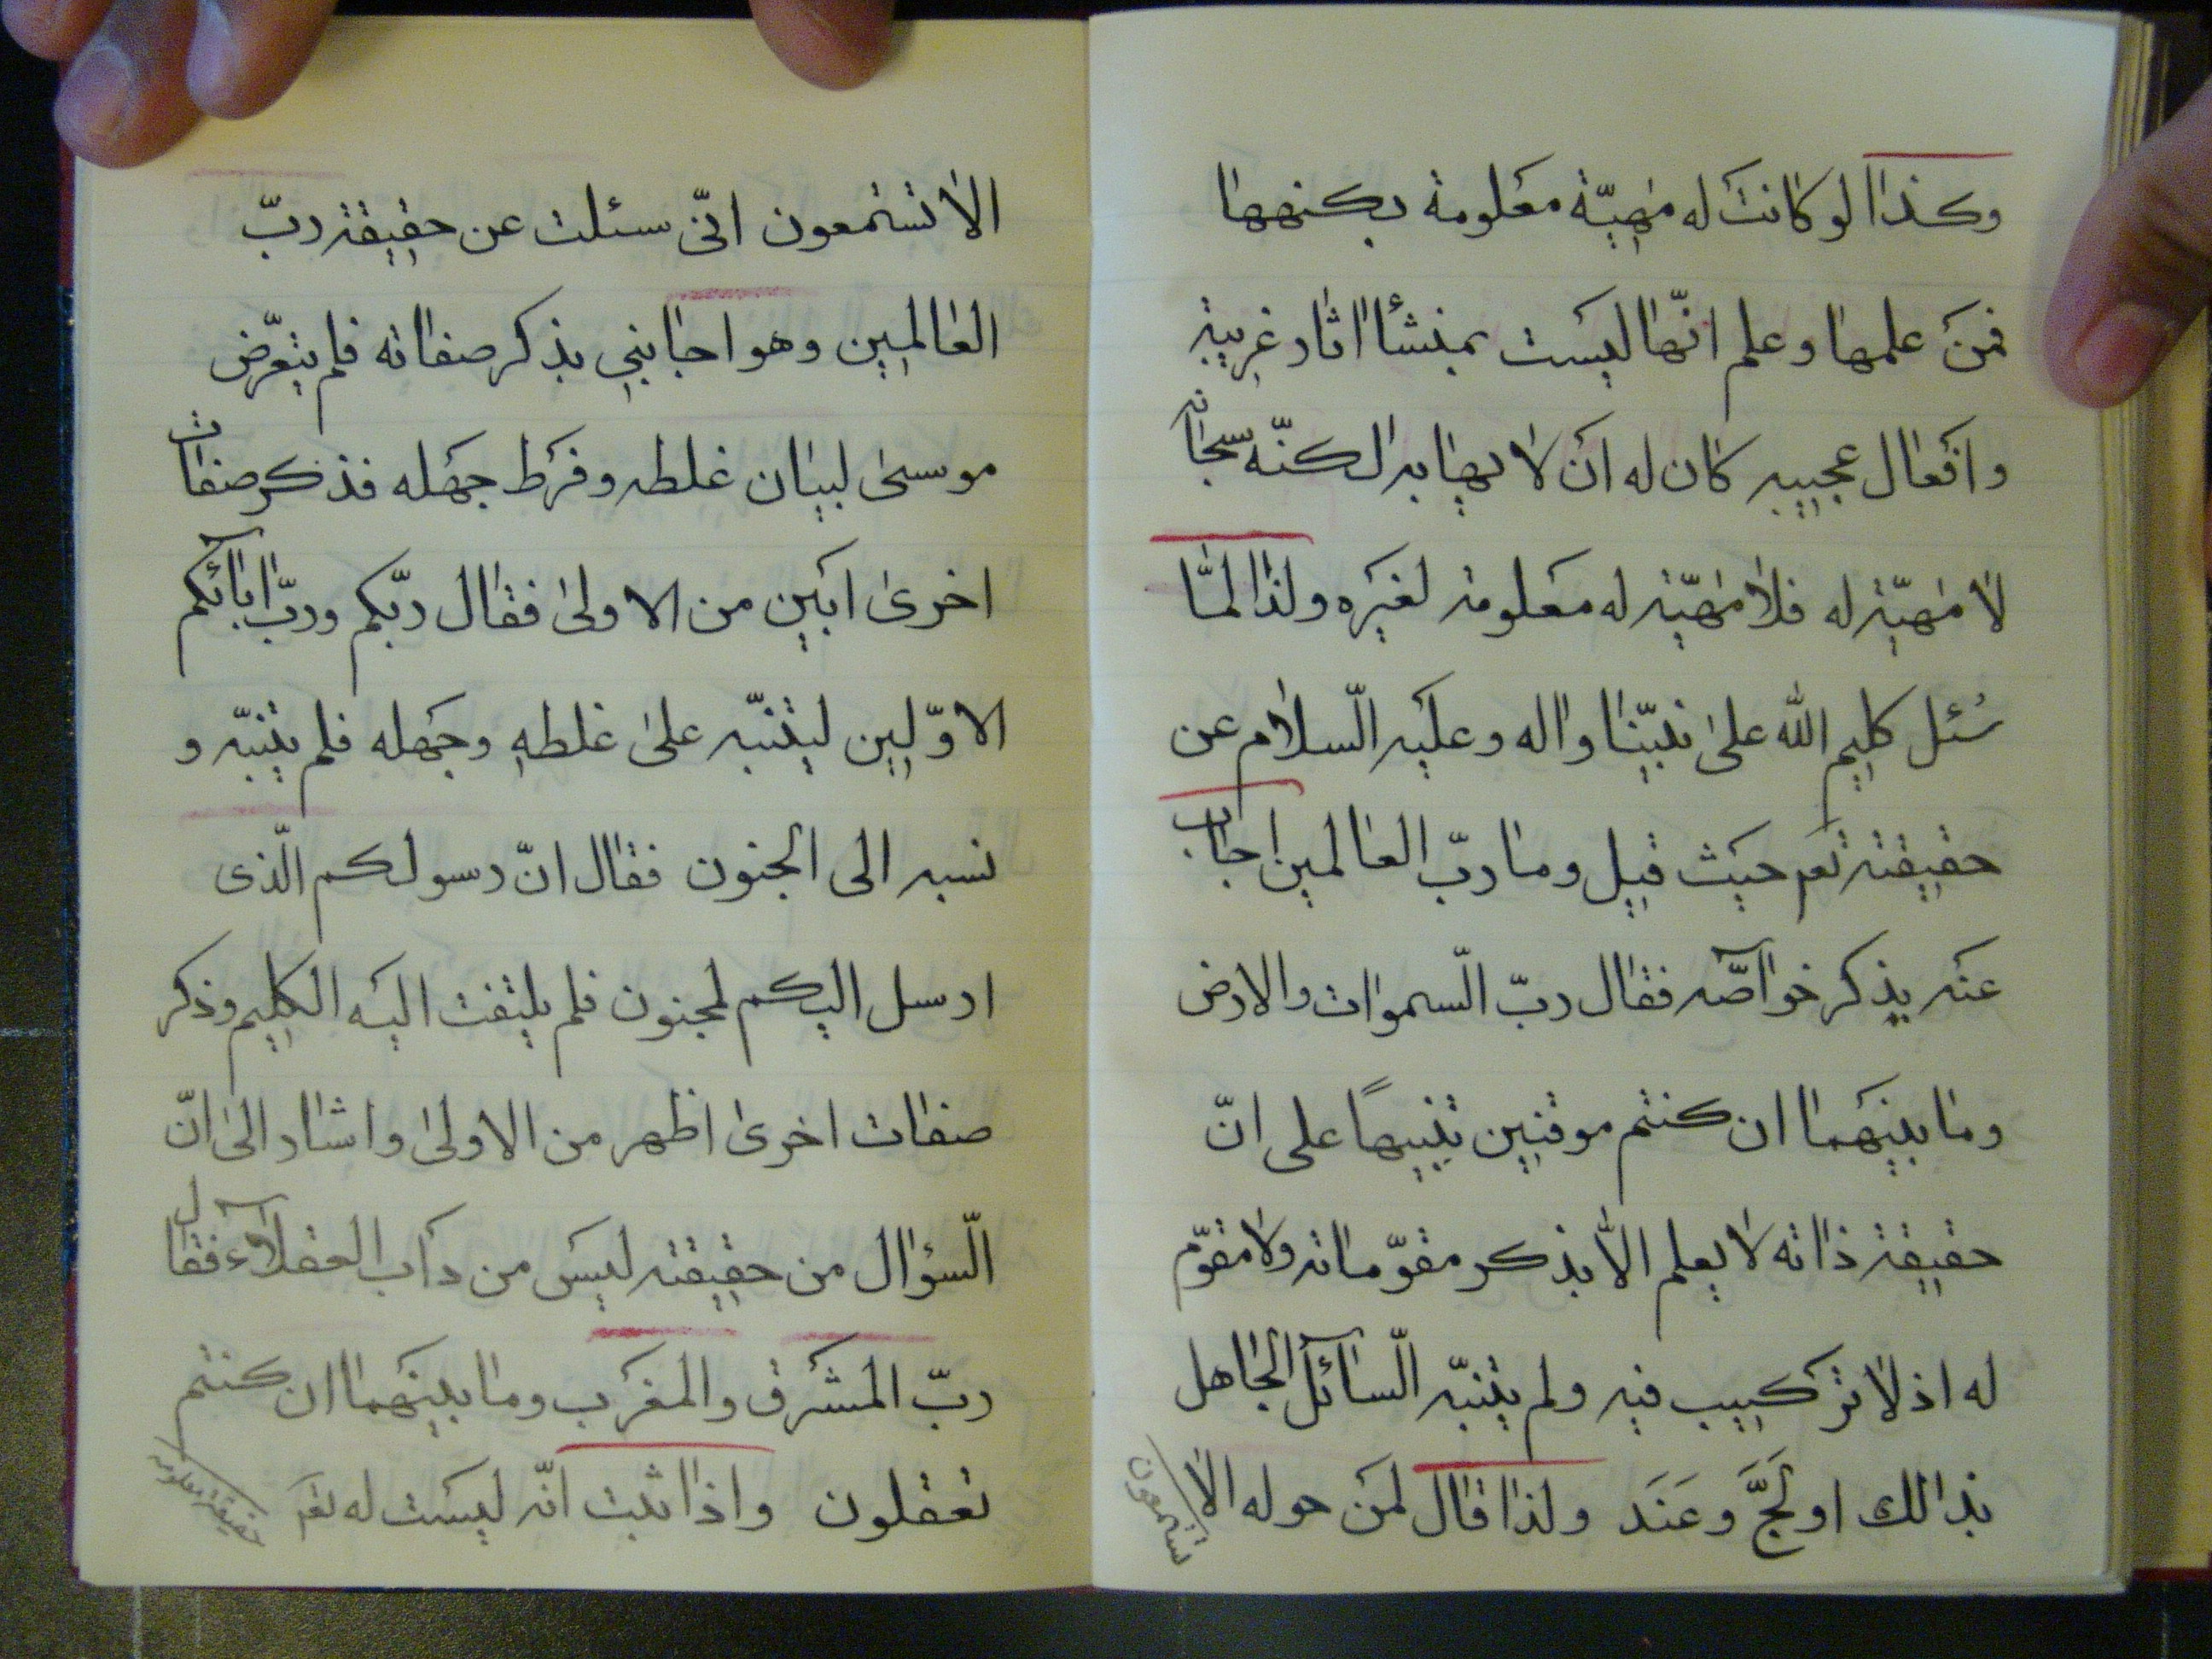 وكذا لو كانت له مهيّة معلومة بكنهها
فمن علمها وعلم انّها ليست بمنشأ اثار غريبة
وافعال عجيبة كان له ان لا يهابه لكنّه سبحانه
لا مهيّة له فلا مهيّة له معلومة لغيره ولذا لمّا
سُئل كليم الله على نبيّنا واله وعليه السّلام عن
حقيقته تعم حيث قيل وما ربّ العالمين اجاب
عنه بذكر خواصّه فقال ربّ السّموات والارض
وما بينهما ان كنتم موقنين تنبيهًا على انّ
حقيقة ذاته لا يعلم الّا بذكر مقوّماته ولا مقوّم
له اذ لا تركيب فيه ولم يتنبّه السّائل الجاهل
بذالك او لجَّ وعَنَد ولذا قال لمن حوله الا
تستمعون
الا تستمعون انّى سئلت عن حقيقة ربّ
العالمين وهو اجابنى بذكر صفاته فلم يتعرّض
موسى لبيان غلطه وفرط جهله فذكر صفات
اخرى ابين من الاولى فقال ربّكم وربّ ابائكم
الاوّلين ليتنبّه على غلطه وجهله فلم يتنبّه و
نسبه الى الجنون فقال انّ رسولكم الّذى
ارسل اليكم لمجنون فلم يلتفت اليه الكليم وذكر
صفات اخرى اظهر من الاولى واشار الى انّ
السّؤال من حقيقته ليس من دأب العقلاء فقال
ربّ المشرق والمغرب وما بينهما ان كنتم
تعقلون واذا ثبت انّه ليست له تعم
حقيقة معلومة